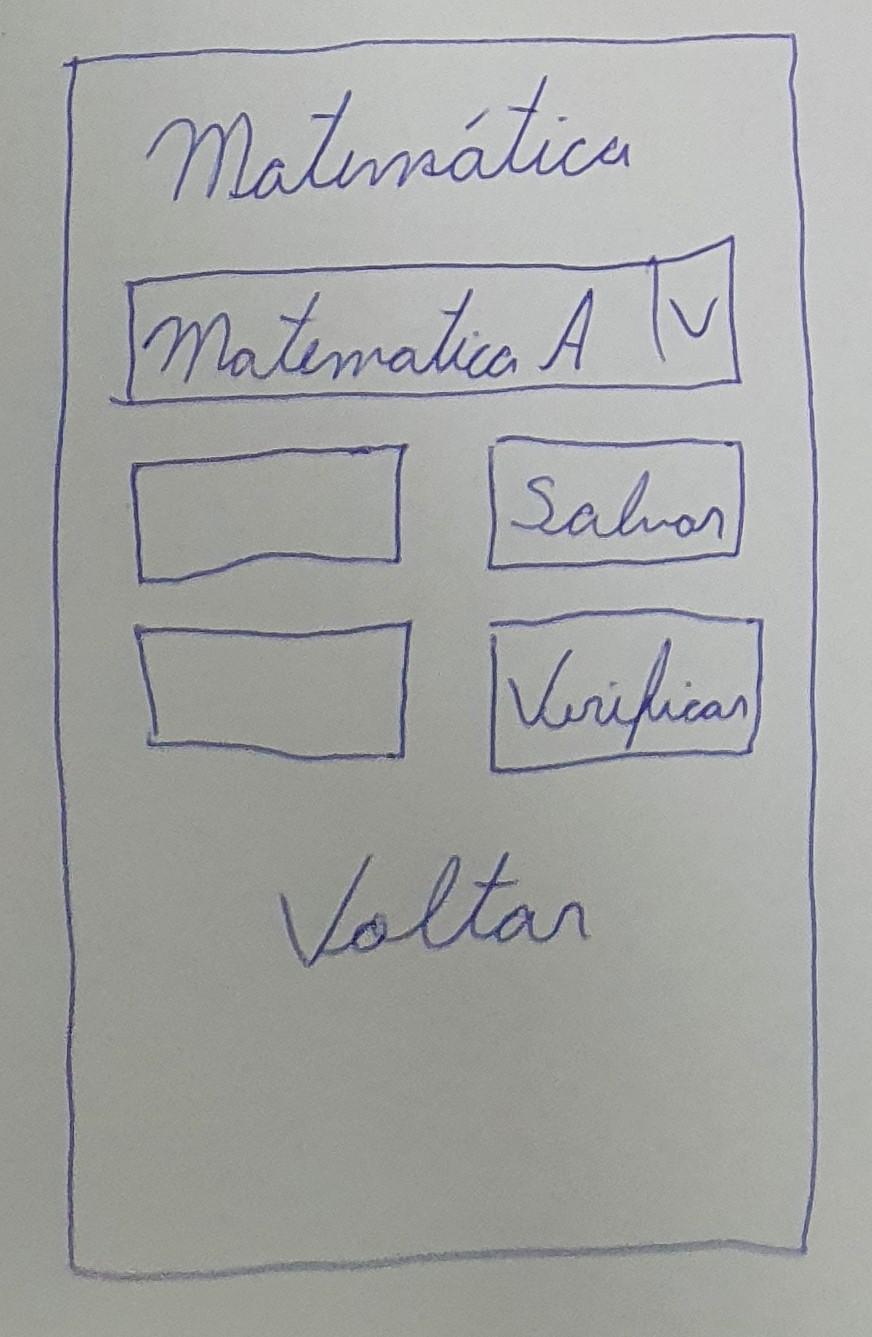 Matemática
Matematica A V
Salvar
Verificar
Voltar